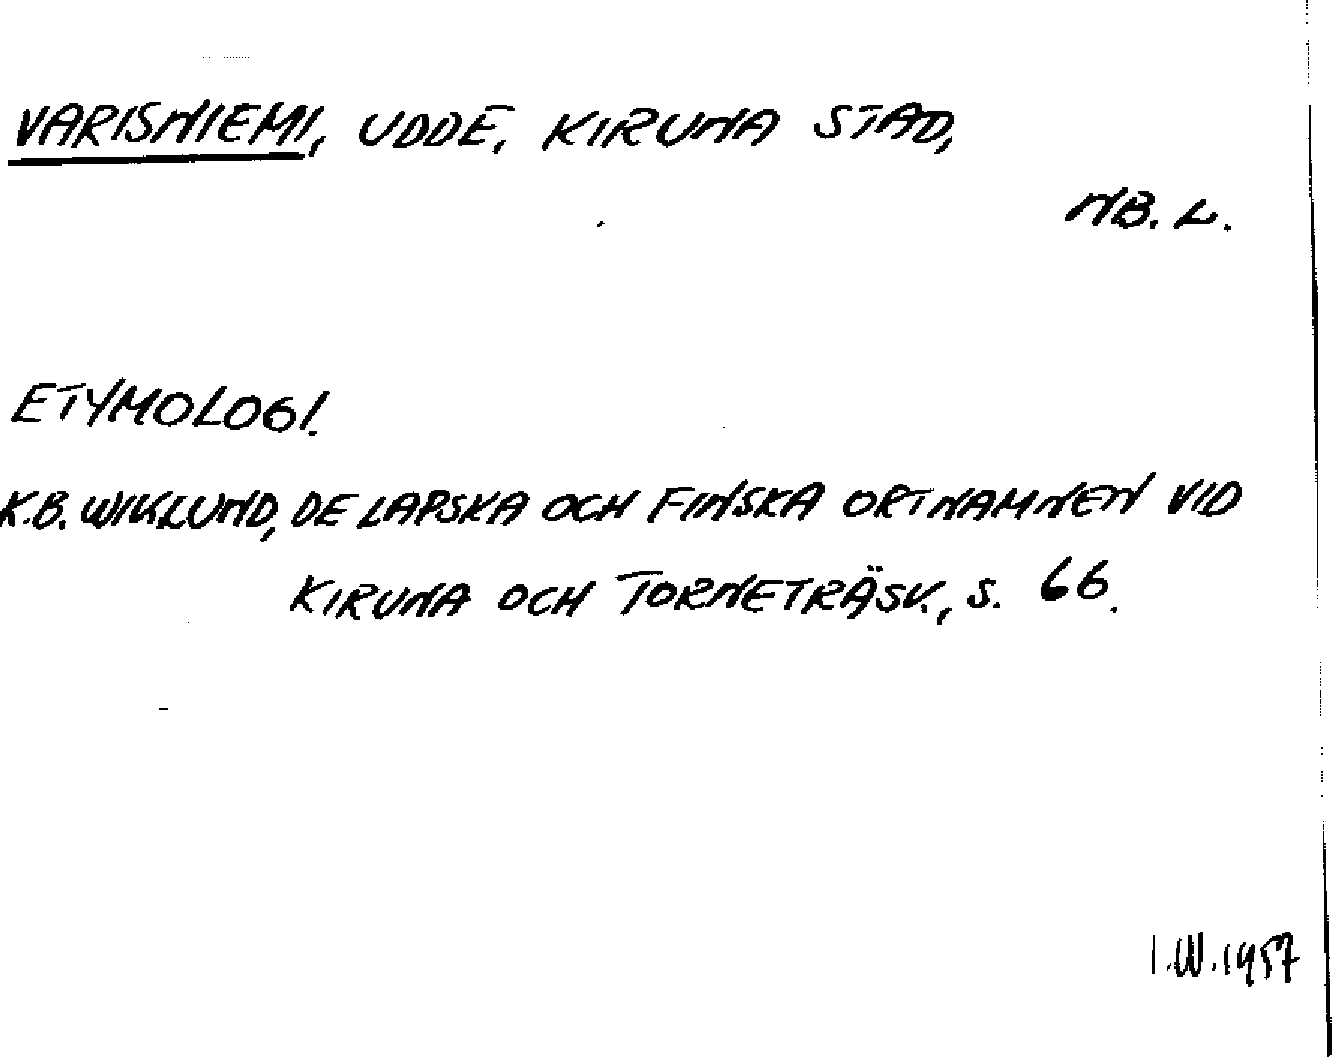 VARISNIEMI, UDDE, KIRUNA STAD,
NB. L.
ETYMOLOGI.
K.B. WIKLUND, DE LAPSKA OCH FINSKA ORTNAMNEN VID
KIRUNA OCH TORNETRÄSK, S. 66.
I.W. 1957